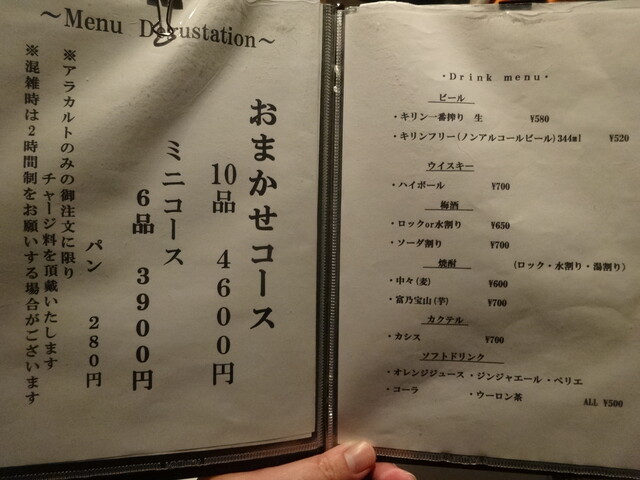 ～Menu Degustation～
おまかせコース
10品 4600円
ミニコース
6品 3900円
パン 280円
※アラカルトのみの御注文に限り
チャージ料を頂戴いたします
※混雑時は2時間制をお願いする場合がございます
・Drink menu・
ビール
・キリン一番搾り 生 ¥580
・キリンフリー(ノンアルコールビール)344ml ¥520
ウイスキー
・ハイボール ¥700
梅酒
・ロックor水割り ¥650
・ソーダ割り ¥700
焼酎 (ロック・水割り・湯割り)
・中々(麦) ¥600
・富乃宝山(芋) ¥700
カクテル
・カシス ¥700
ソフトドリンク
・オレンジジュース・ジンジャエール・ペリエ
・コーラ ・ウーロン茶 ALL ¥500